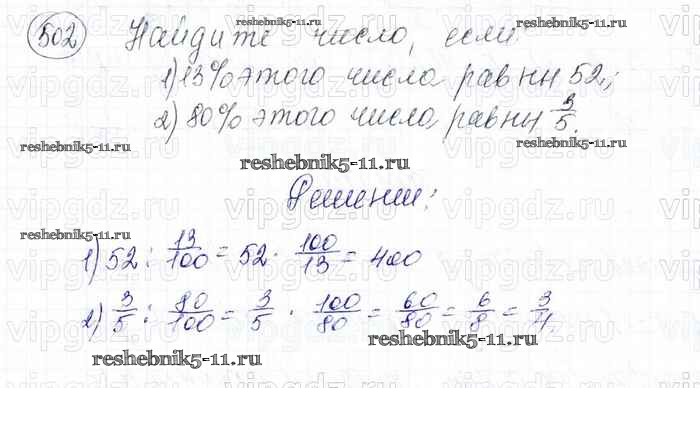 502 Найдите число, если
1) 13% этого числа равны 52;
2) 80% этого числа равны 3/5.
Решение:
1) 52 : 13/100 = 52 · 100/13 = 400
2) 3/5 : 80/100 = 3/5 · 100/80 = 60/80 = 6/8 = 3/4
reshebnik5-11.ru
reshebnik5-11.ru
reshebnik5-11.ru
reshebnik5-11.ru
reshebnik5-11.ru
reshebnik5-11.ru
reshebnik5-11.ru
vipgdz.ru